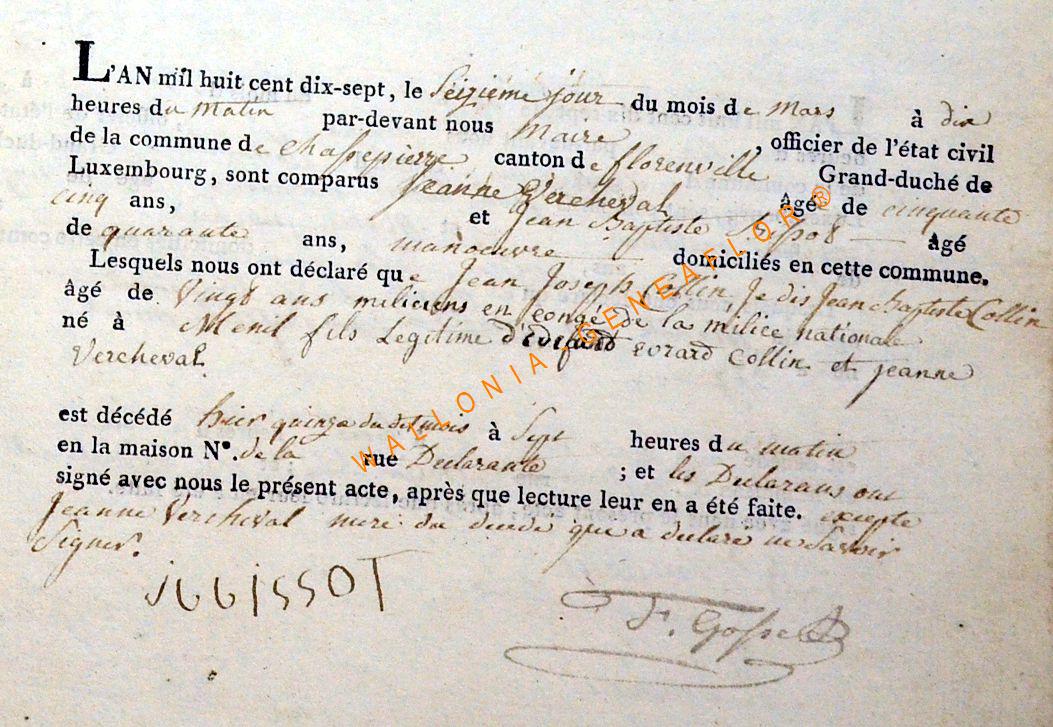 L'AN mil huit cent dix-sept, le Seizième jour du mois de Mars à dix
heures du matin par-devant nous Maire, officier de l'état civil
de la commune de Chassepierre canton de florenville Grand-duché de
Luxembourg, sont comparus Jeanne Vercheval âgé de cinquante
cinq ans, et Jean Baptiste âgé
de quarante ans, manoeuvre domiciliés en cette commune.
Lesquels nous ont déclaré que Jean Joseph Collin, Je dis Jean Baptiste Collin
âgé de Vingt ans miliciens en congé de la milice nationale
né à Menil fils Legitime d' Evrard Collin et jeanne
Vercheval
est décédé hier quinze du dit mois à Sept heures du matin
en la maison N°. de la rue Declarante ; et les Declarans ont
signé avec nous le présent acte, après que lecture leur en a été faite. excepte
Jeanne Vercheval mere du decede que a declare ne Savoir
Signer.
JBGISSOT
F. Gosse
WALLONIA GENEAFLOR®